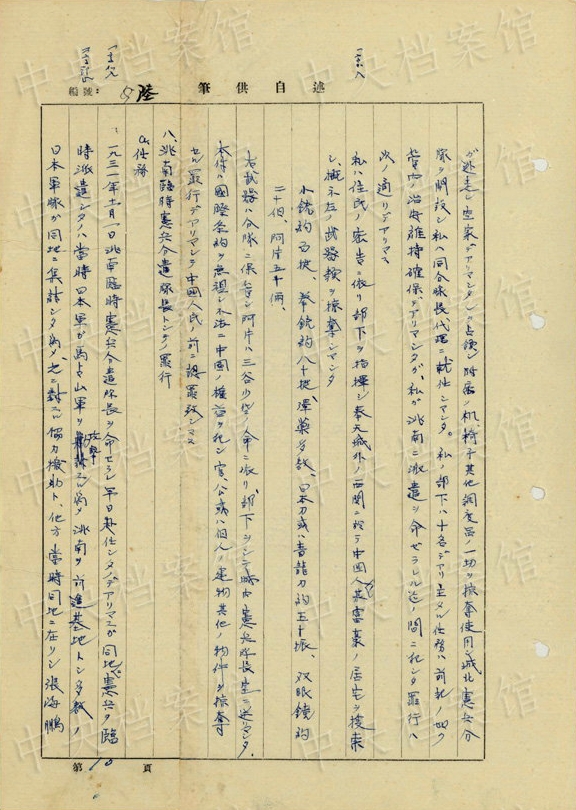 筆供自述
編號：
陸
ガ逃走シ空家デアリマシタ)ヲ占領シ附屬ノ机、椅子其他調度品ノ一切ヲ掠奪使用シ城北憲兵分
隊ヲ開設シ私ハ同分隊長代理ニ就任シマシタ。私ノ部下ハ十名デアリ主メル任務ハ前記ノ如ク
管内ノ治安維持確保デアリマシタガ、私ガ洮南ニ派遣ヲ命ゼラレル迄ノ間ニ犯シタ罪行ハ
次ノ通リデアリマス
私ハ住民ノ密告ニ依リ部下ヲ指揮シ奉天城外ノ西関ニ於テ中国人ノ居宅ヲ捜索
シ、概ネ左ノ武器類ヲ掠奪シマシタ
小銃約百挺、拳銃約八十挺、彈藥多数、日本刀或ハ青龍刀約五十振、双眼鏡約
二十個、阿片五十両、
右武器ハ分隊ニ保管シ阿片ハ三谷少佐ノ命ニ依リ部下ヲシテ城内憲兵隊長室ニ送リマシタ。
本件ハ國際条約ヲ無視シ不法ニ中国ノ權益ヲ犯シ官、公或ハ個人ノ建物其他ノ物件ヲ掠奪
セル罪行デアリマシテ中国人民ノ前ニ認罪致シマス
八、洮南臨時憲兵分遣隊長トシテノ罪行
任務
一九三一年十一月一日洮南臨時憲兵分遣隊長ヲ命ゼラレ即日赴任シタノデアリマスガ同地ニ憲兵ヲ臨
時派遣シタノハ當時日本軍ガ馬占山軍ヲ攻撃スル為メ洮南ヲ前進基地トシタ為メ多数ノ
日本軍隊ガ同地ニ集結シタ為メ、之ニ對スル協力援助ト、他方當時同地ニ在リシ張海鵬
第10頁
中央档案馆